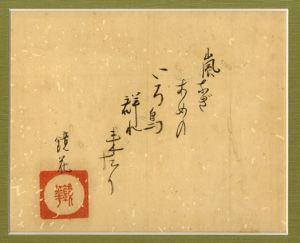 嵐なぎ
あめの
いろ鳥
群れ
来たり
鏡花